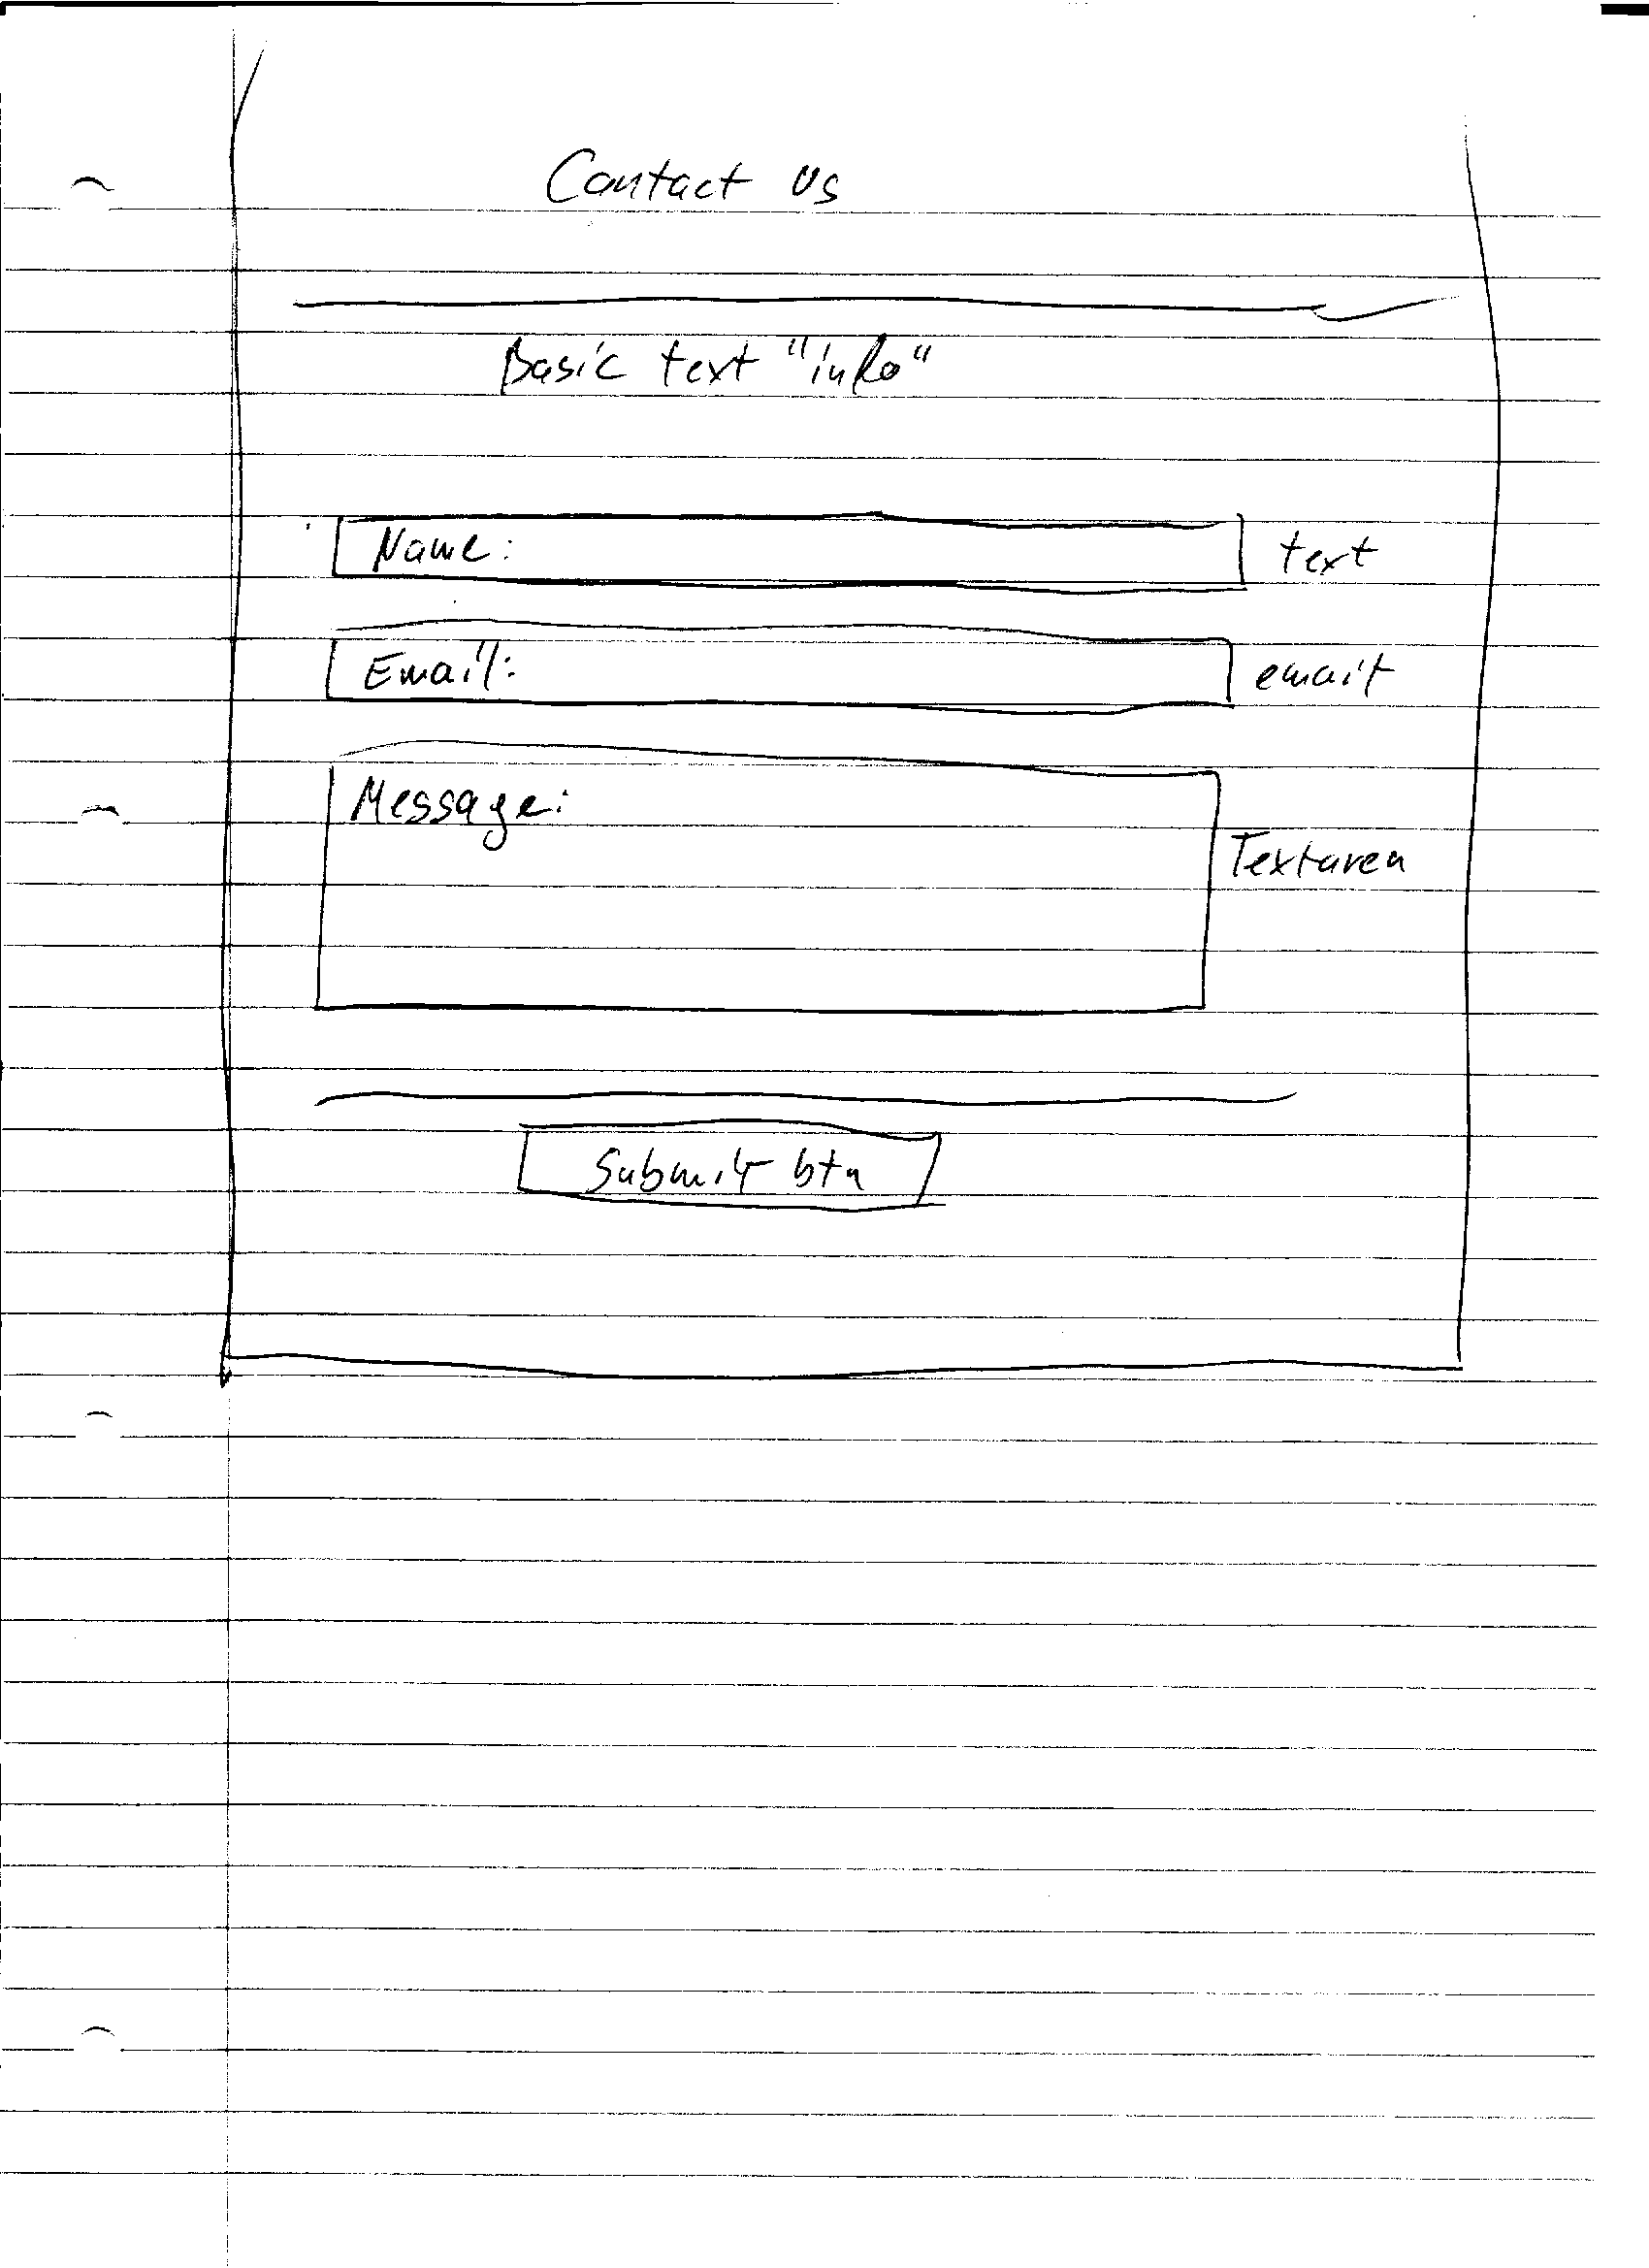 Contact Us
Basic text "info"
Name: text
Email: email
Message:
Textarea
Submit btn